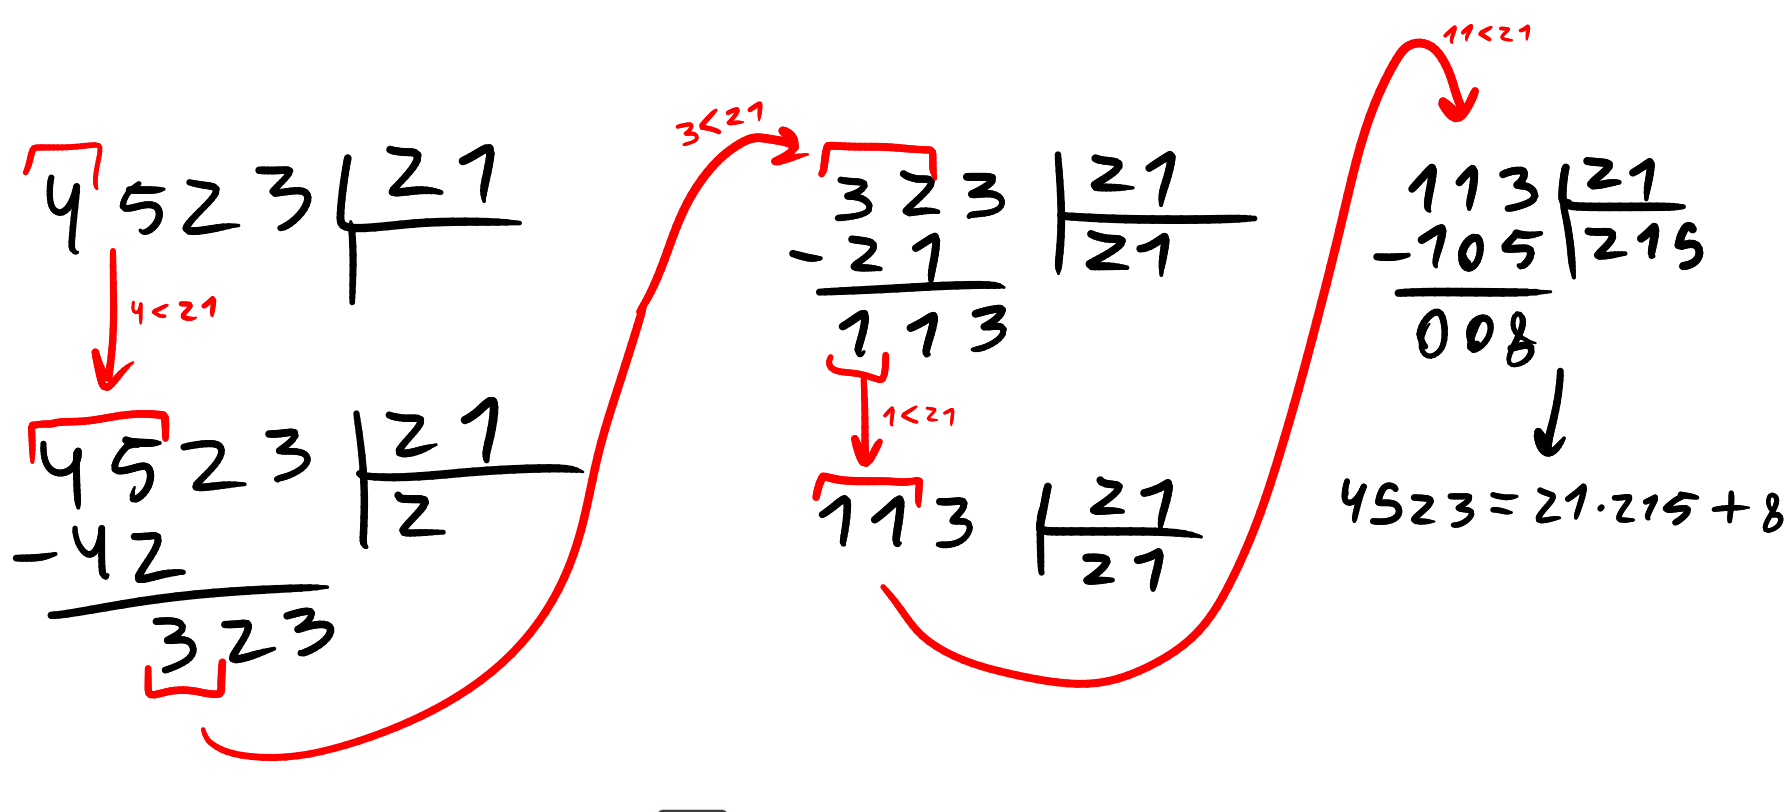 4523 21
4<21
4523 21
-42 2
323
3<21
323 21
-21 21
113
1<21
113 21
21
11<21
113 21
-105 215
008
4523=21·215+8